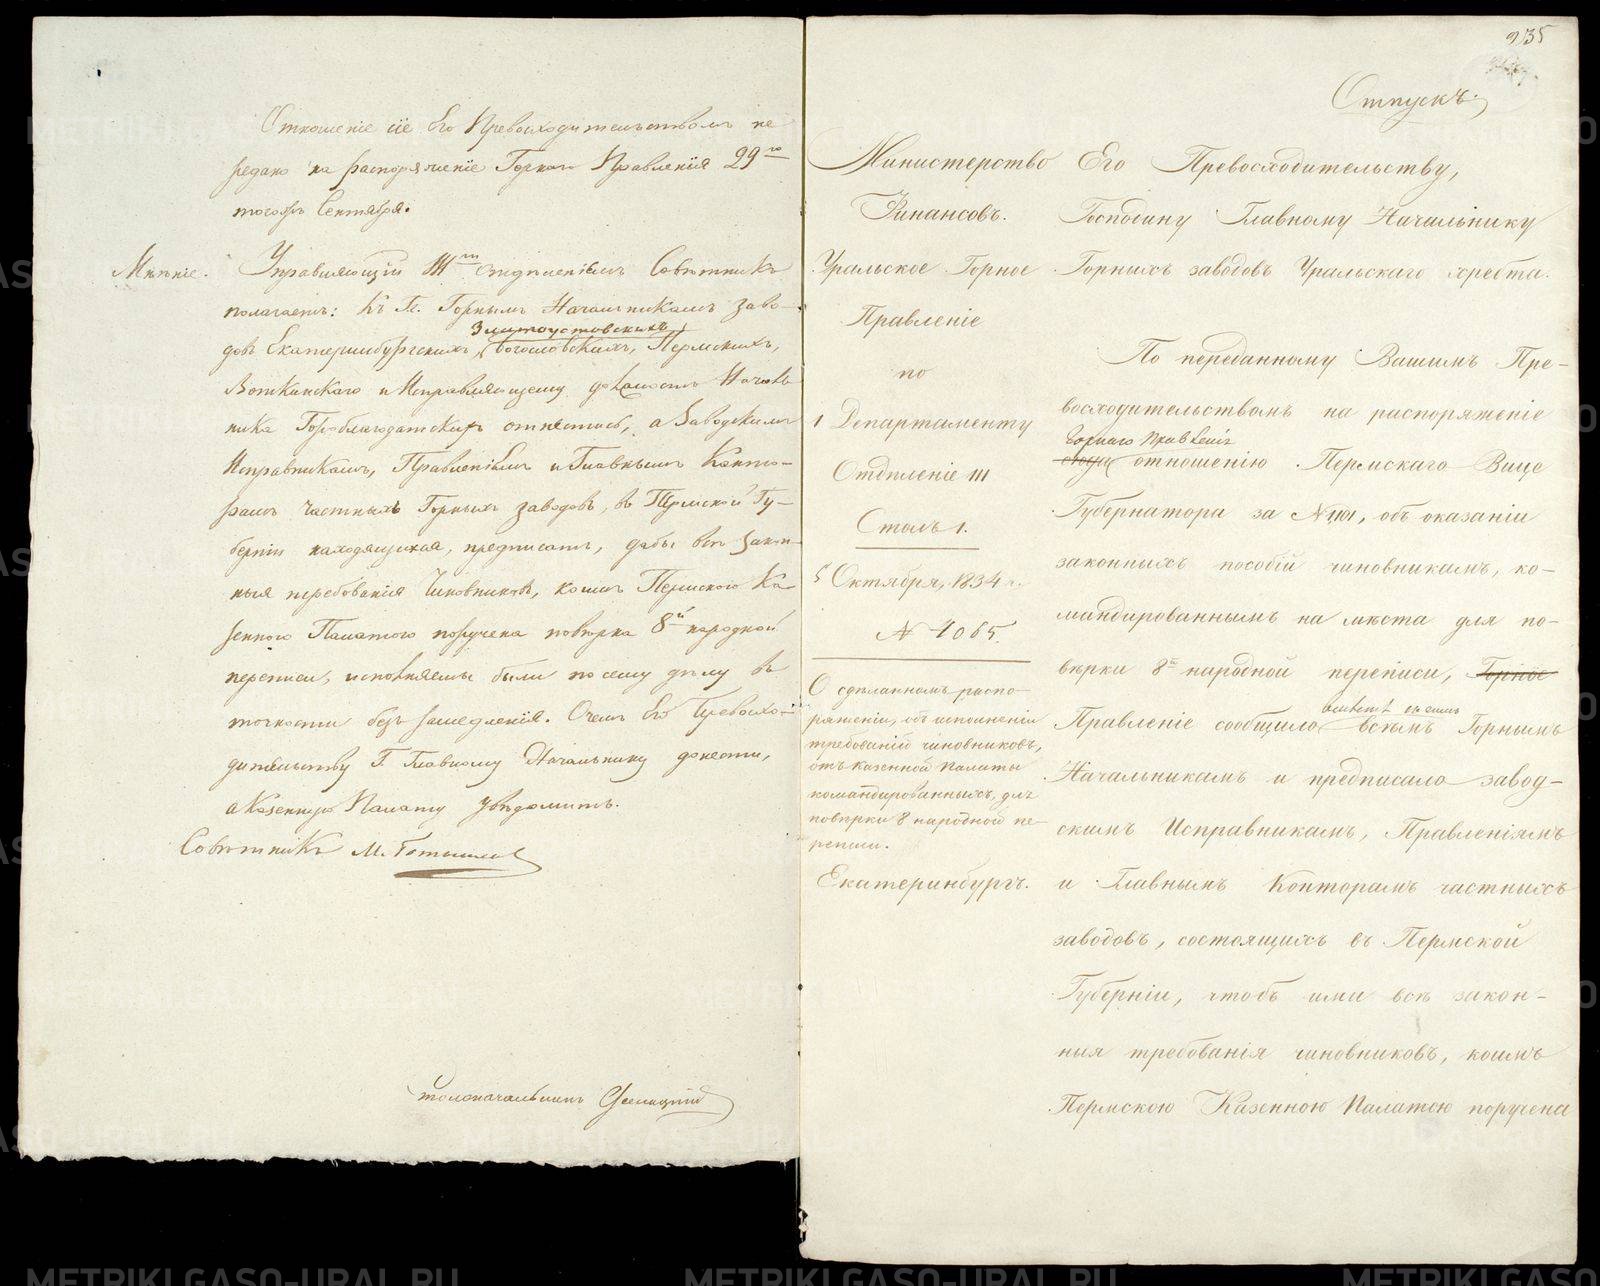 Отношеніе сіе Его Превосходительствомъ пе
редано на распоряженіе Горнаго Правленія 29го
тогожъ Сентября.
Мнѣніе. Управляющій IIIмъ отдѣленіемъ Совѣтникъ
полагаетъ: къ Гг. Горнымъ Начальникамъ заво-
Златоустовскихъ
довъ Екатеринбургскихъ, Богословскихъ, Пермскихъ,
Воткинскаго и Исправляющему должность Началь
ника Гороблагодатскихъ отнестись, а Заводскимъ
Исправникамъ, Правленіямъ и Главнымъ Конто-
рамъ частныхъ Горныхъ заводовъ, въ Пермской Гу-
берніи находящихся, предписать, дабы всѣ закон-
ныя требованія Чиновниковъ, коимъ Пермскою Ка-
зенною Палатою поручена повѣрка 8й народной
переписи, исполняемы были по сему дѣлу въ
точности безъ замедленія. О чемъ Его Превосхо-
дительству Г. Главному Начальнику донести,
а Казенную Палату увѣдомить.
Совѣтникъ М.
Столоначальникъ
235
Отпускъ.
Министерство
Финансовъ.
Уральское Горное
Правленіе
по
1 Департаменту
Отдѣленіе III
Столъ 1.
5 Октября, 1834 г.
N 4065.
О сдѣланномъ распо-
ряженіи, объ исполненіи
требованій чиновниковъ,
отъ Казенной Палаты
командированныхъ, для
повѣрки 8 народной пе-
реписи.
Екатеринбургъ.
Его Превосходительству,
Господину Главному Начальнику
Горныхъ заводовъ Уральскаго хребта.
По переданному Вашимъ Пре-
восходительствомъ на распоряженіе
Горнаго Правленія
отношенію Пермскаго Вице
Губернатора за N 1101, объ оказаніи
законныхъ пособій чиновникамъ, ко-
мандированнымъ на мѣста для по-
вѣрки 8й народной переписи, Горное
Правленіе сообщило всѣмъ Горнымъ
Начальникамъ и предписало завод-
скимъ Исправникамъ, Правленіямъ
и Главнымъ Конторамъ частныхъ
заводовъ, состоящихъ въ Пермской
Губерніи, чтобъ ими всѣ закон-
ныя требованія чиновниковъ, коимъ
Пермскою Казенною Палатою поручена
METRIKI.GASO-URAL.RU